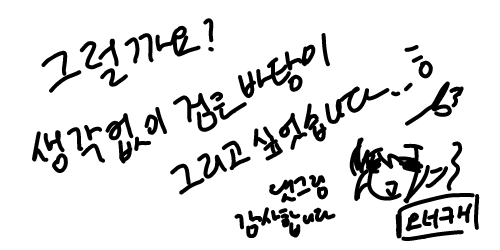 그럴까요?
생각없이 검은 바탕이
그리고 싶었습니다...
댓그림
감사합니다